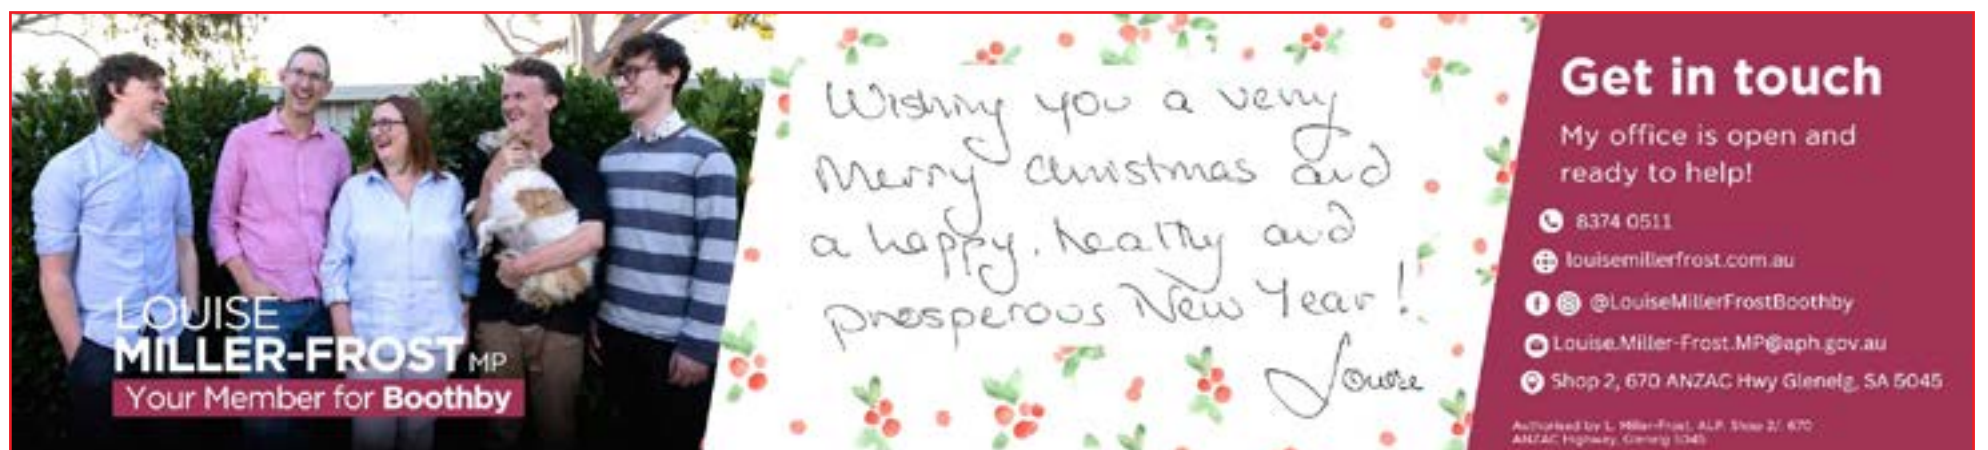 LOUISE
MILLER-FROST MP
Your Member for Boothby
Wishing you a very
Merry Christmas and
a happy, healthy and
prosperous New Year!
Louise
Get in touch
My office is open and
ready to help!
8374 0511
louisemillerfrost.com.au
@LouiseMillerFrostBoothby
Louise.Miller-Frost.MP@aph.gov.au
Shop 2, 670 ANZAC Hwy Glenelg, SA 5045
Authorised by L. Miller-Frost, ALP, Shop 2/. 670
ANZAC Highway, Glenelg 5045